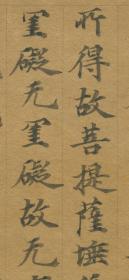 所得故菩提薩埵
罣礙无罣礙故无